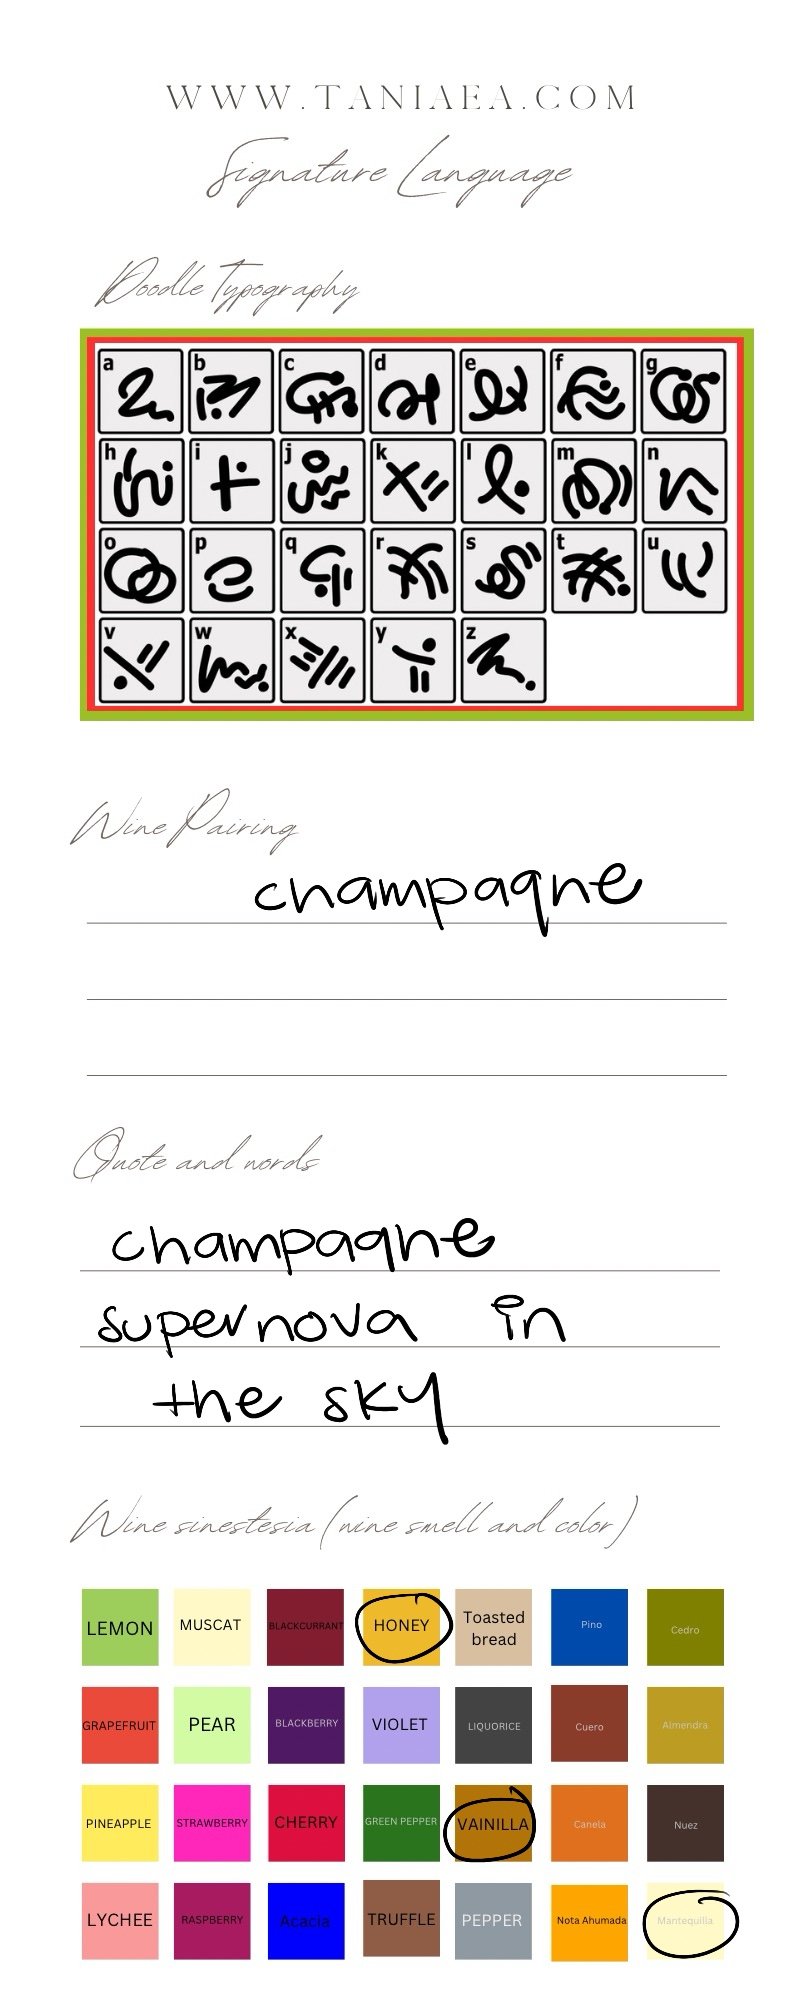 WWW.TANIAEA.COM
Signature Language
Doodle Typography
a b c d e f g
h i j k l m n
o p q r s t u
v w x y z
Wine Pairing
champagne
Quote and words
champagne
supernova in
the sky
Wine sinestesia (wine smell and color)
LEMON MUSCAT BLACKCURRANT HONEY Toasted bread Pino Cedro
GRAPEFRUIT PEAR BLACKBERRY VIOLET LIQUORICE Cuero Almendra
PINEAPPLE STRAWBERRY CHERRY GREEN PEPPER VAINILLA Canela Nuez
LYCHEE RASPBERRY Acacia TRUFFLE PEPPER Nota Ahumada Mantequilla